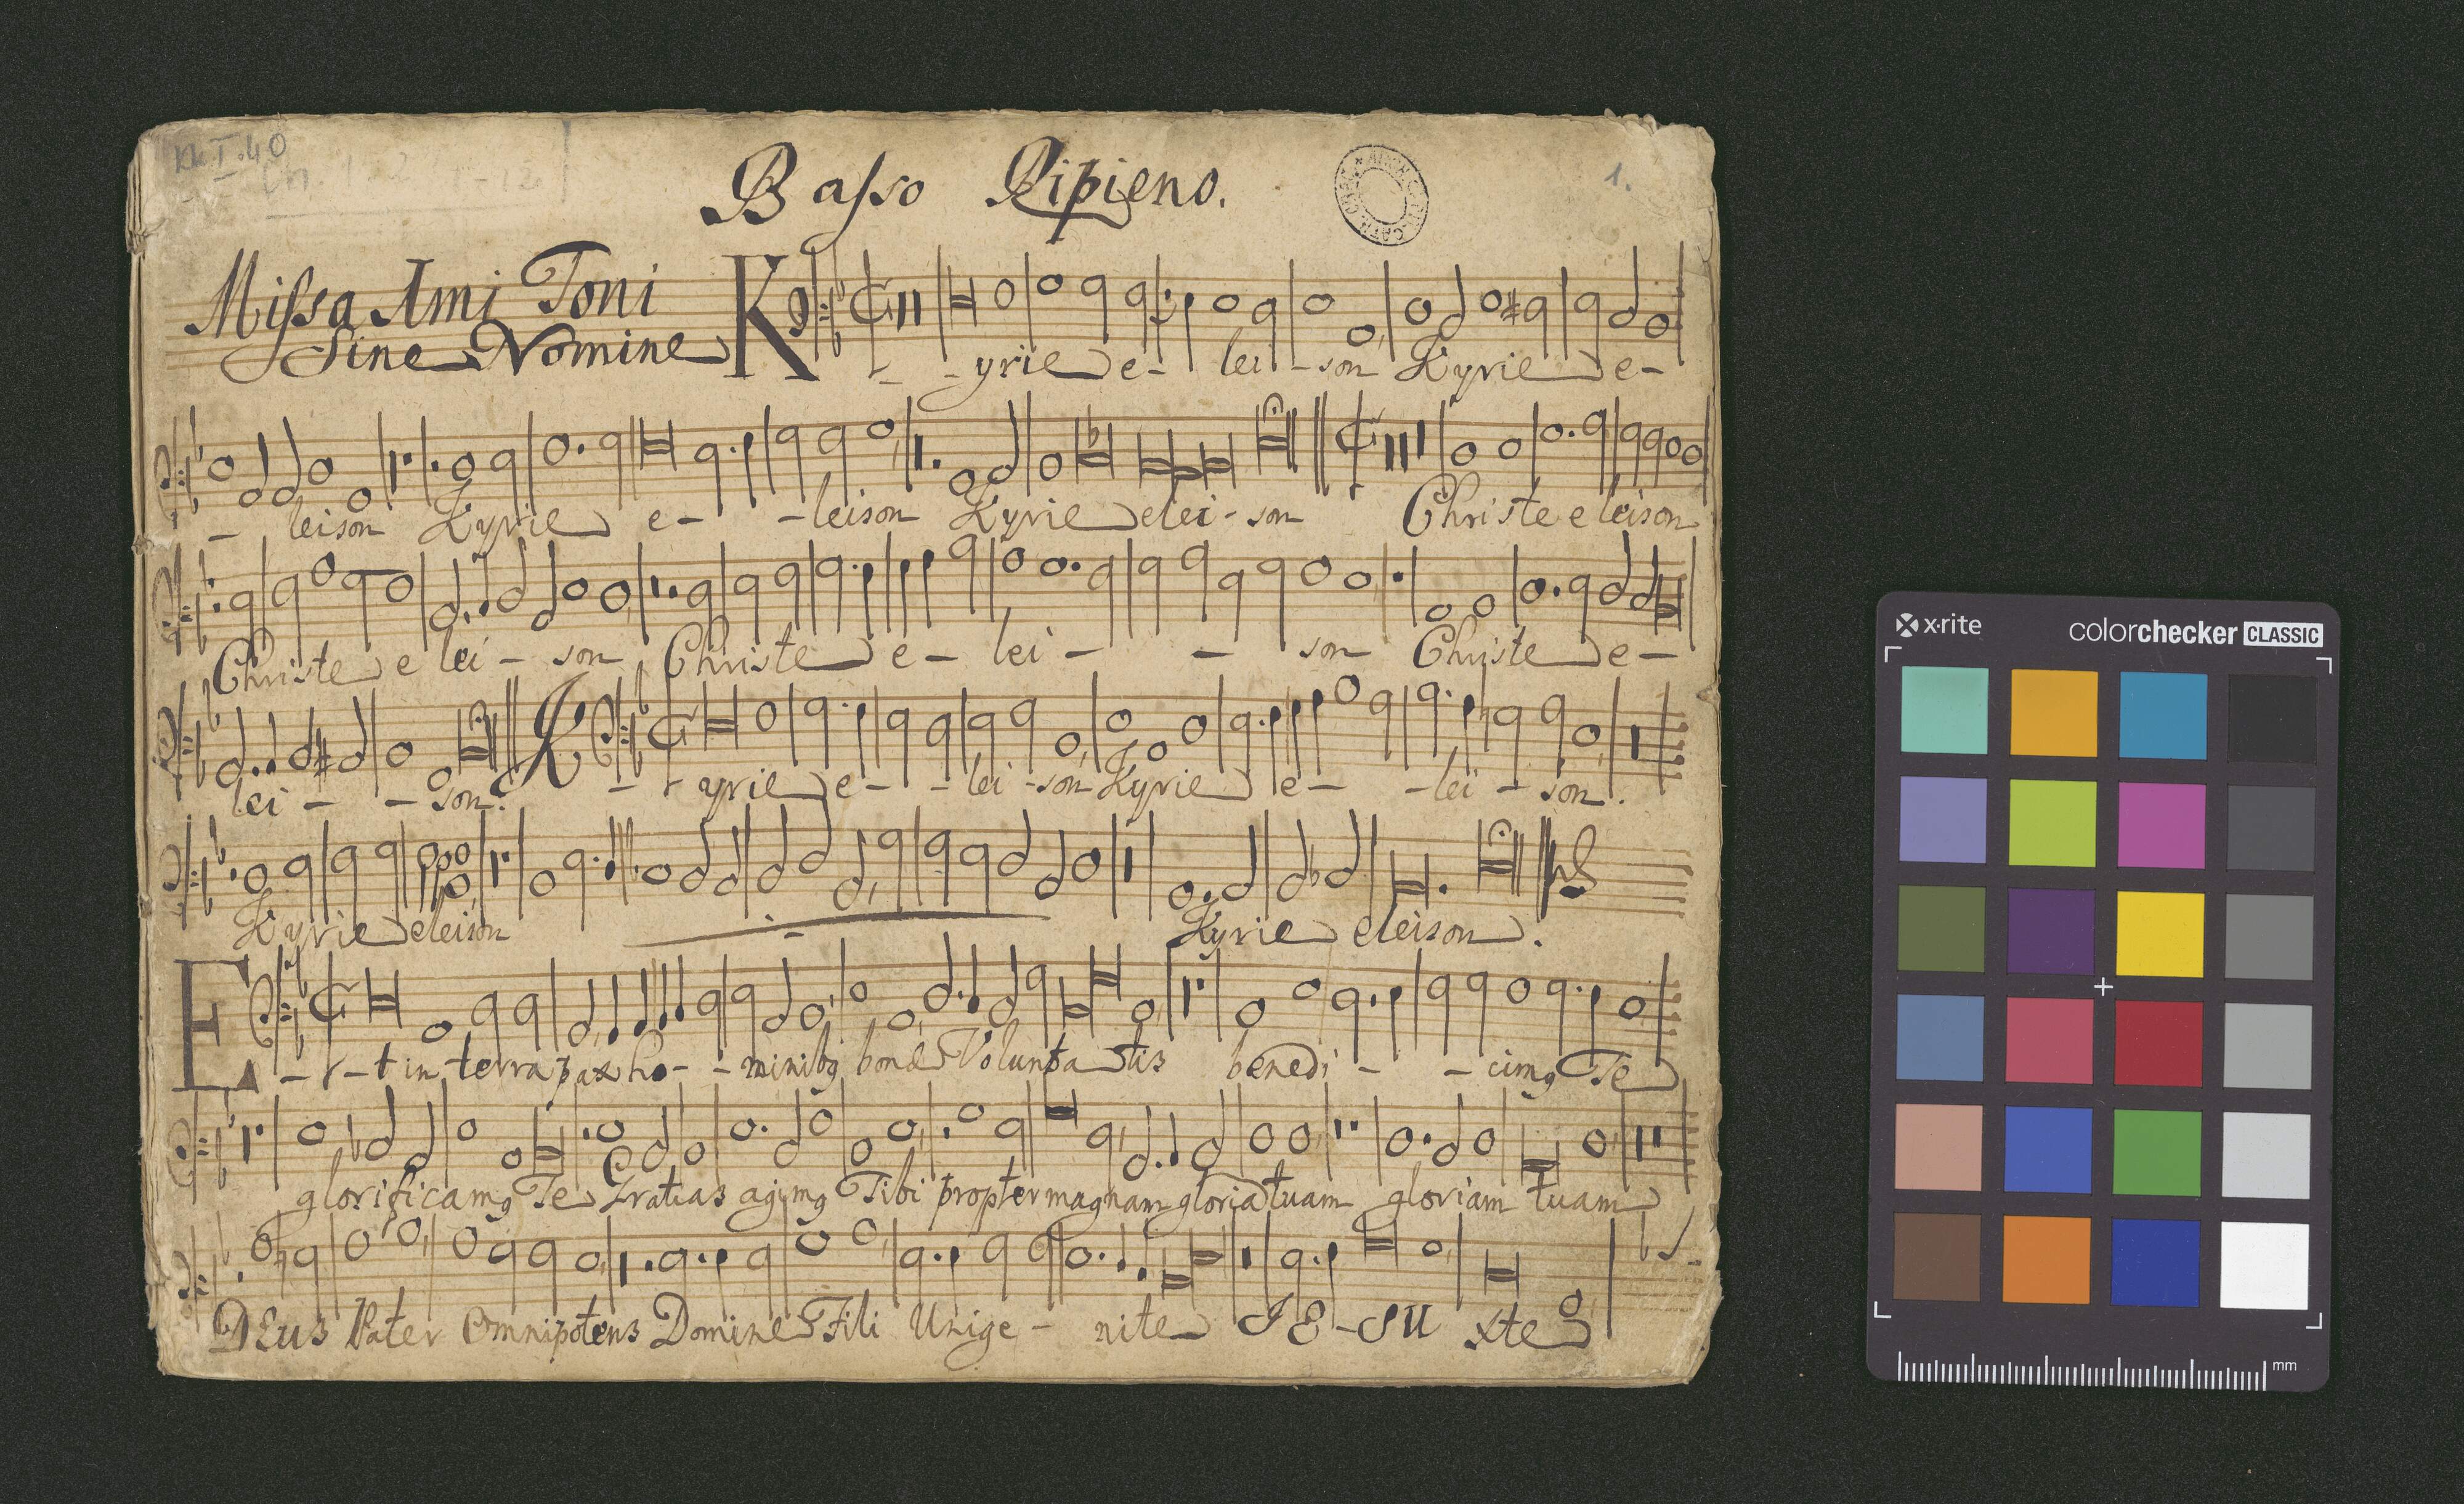 Kk I.40
Basso Ripieno.
1.
Missa Imi Toni
Sine Nomine
K - - yrie e - lei - son Kyrie e -
- leison Kyrie e - - leison Kyrie elei - son Christe eleison
Christe e lei - son Christe e - lei - - son Christe e -
lei - - son. K - - yrie e - - lei - son Kyrie e - - lei - son.
Kyrie eleison - Kyrie eleison.
E - - t in terra pax ho - - minibꝫ bonæ Volunta tis benedi - - cimꝫ Te
glorificamꝫ Te Gratias agimꝫ Tibi propter magnam gloria tuam gloriam tuam
DEus Pater Omnipotens Domine Fili Unige - nite JE - SU xte
x·rite
colorchecker CLASSIC
mm